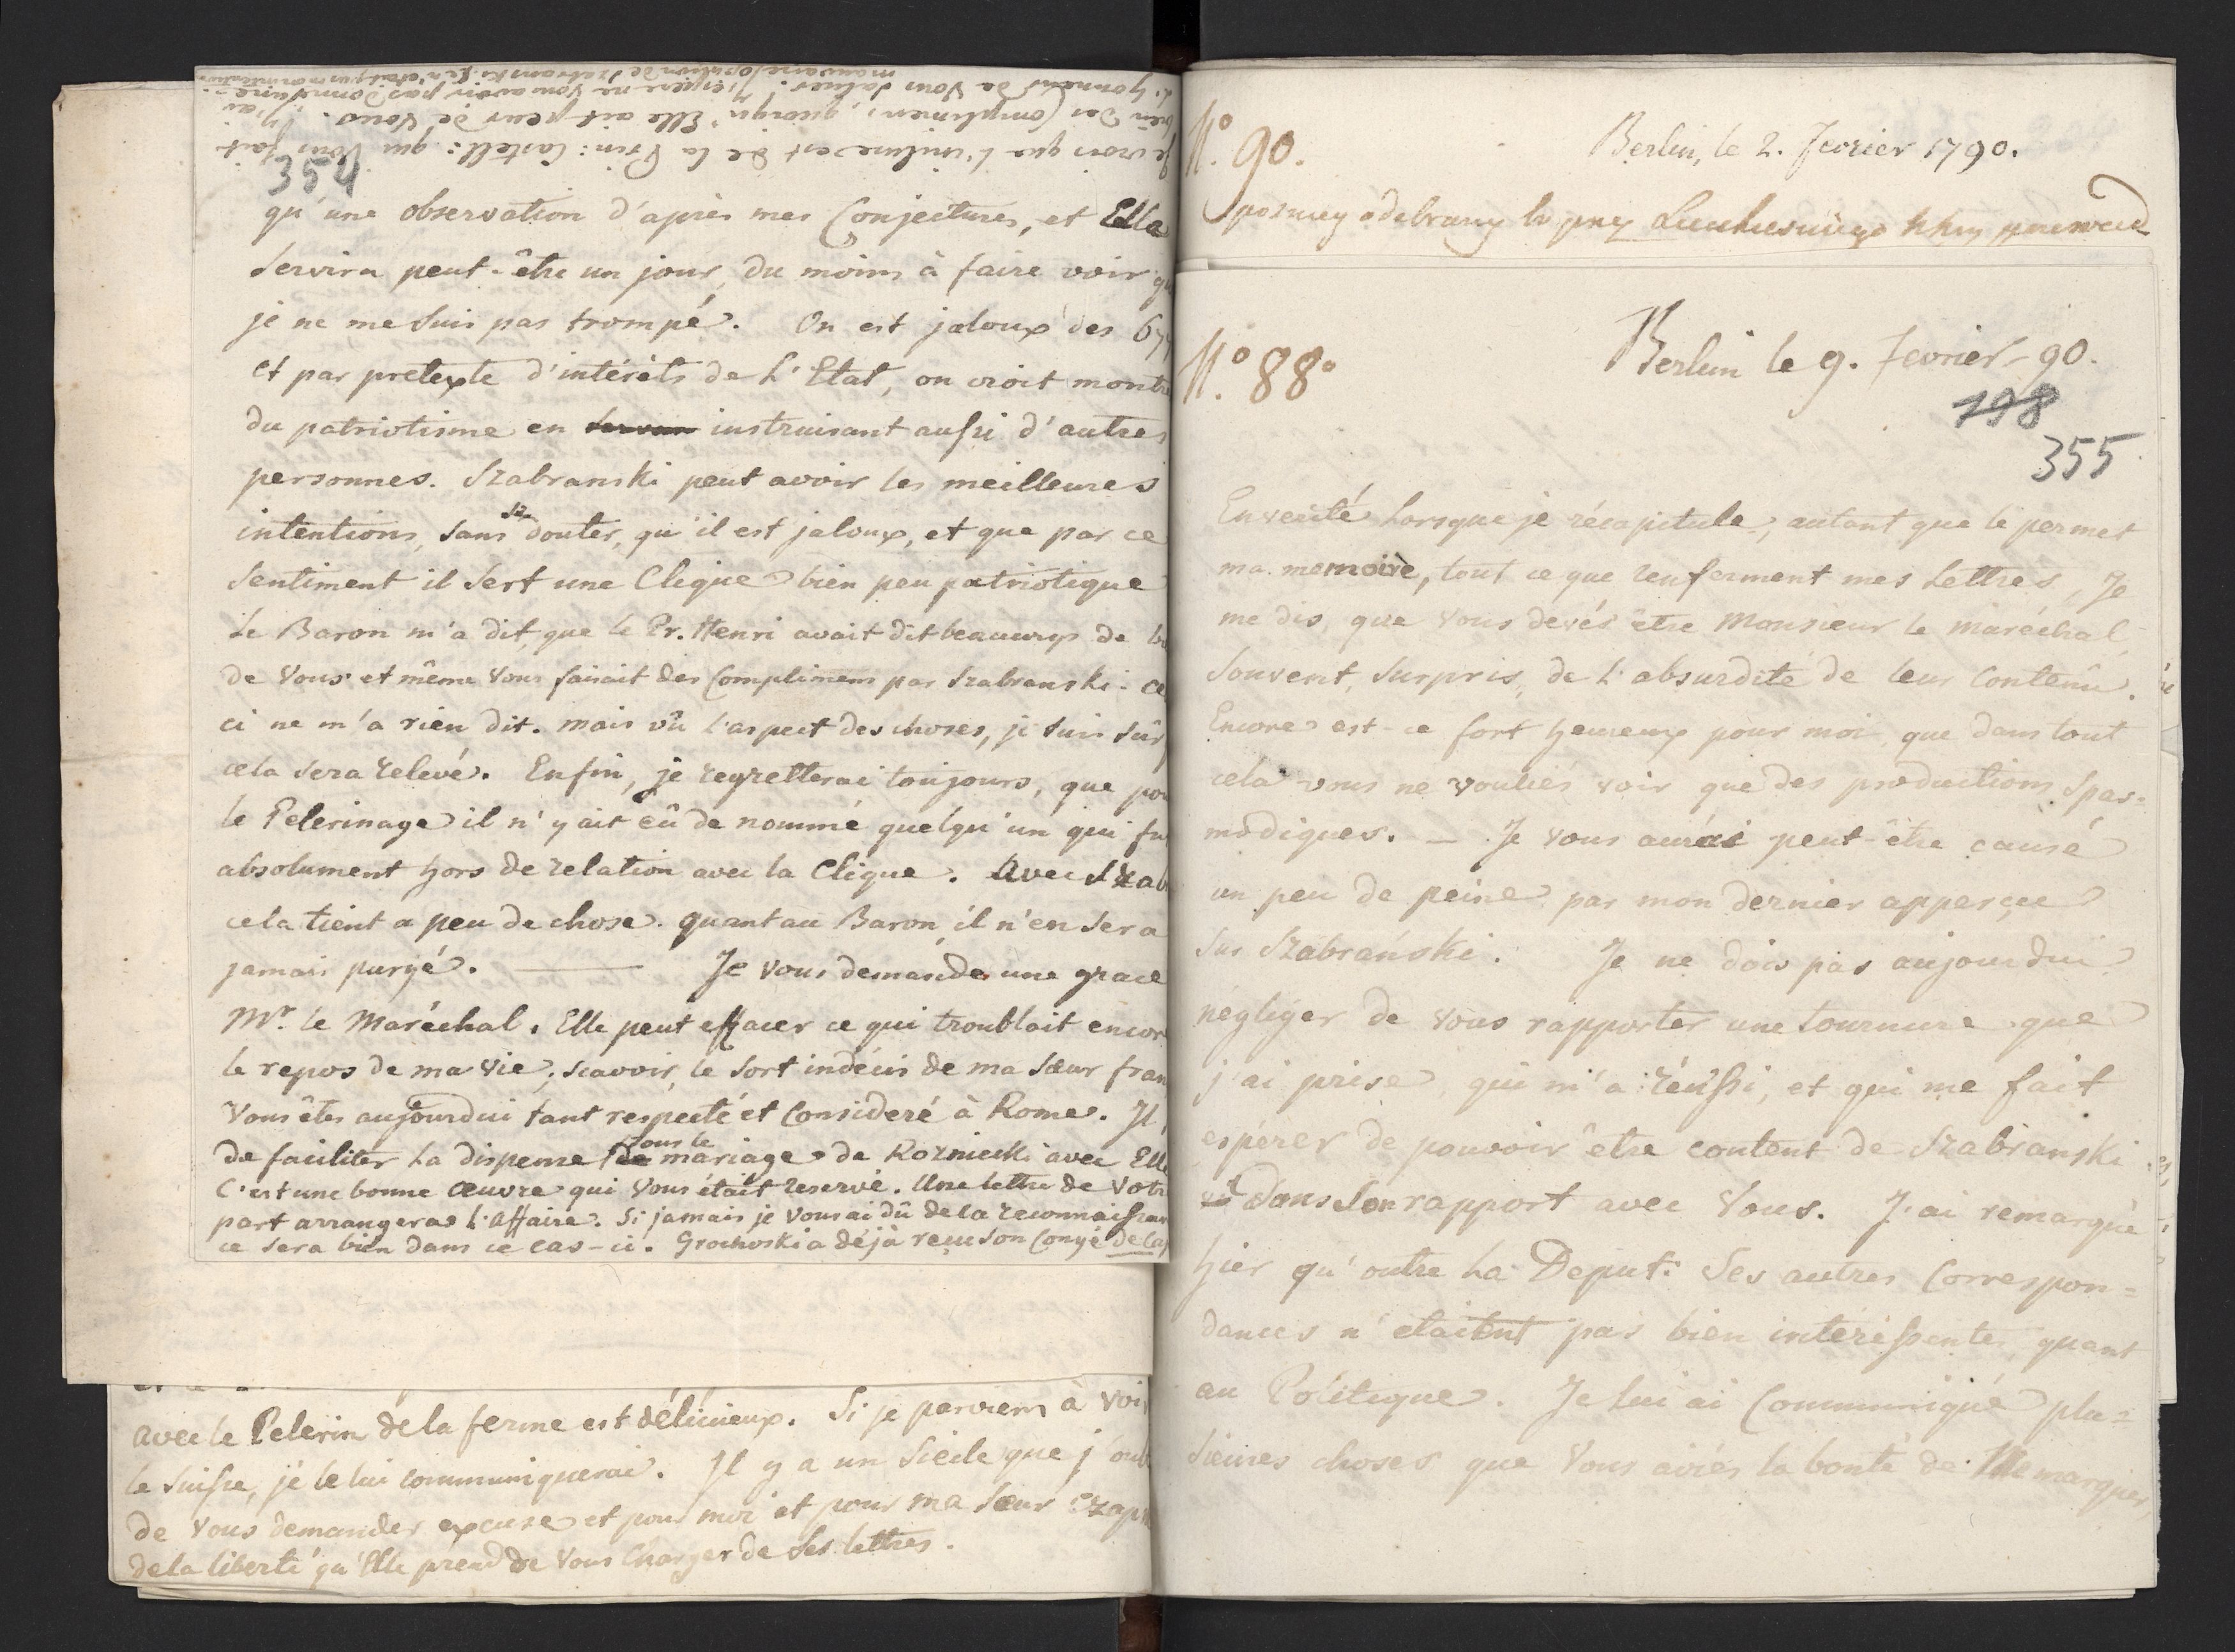 354
qu'une observation d'après mes Conjectures, et Elle
servira peut-être un jour, du moins à faire voir qu
je ne me suis pas trompé. On est jaloux des
et par pretexte d'intérêts de L'Etat, on croit montre
du patriotisme en instruisant aussi d'autres
personnes. Szabranski peut avoir les meilleures
intentions, sans se douter, qu'il est jaloux, et que par ce
sentiment il sert une Clique bien peu patriotique
Le Baron m'a dit, que le Pr. Henri avait dit beaucoup de
de Vous et même Vous faisait des Complimens par Szabranski - ce
ci ne m'a rien dit. mais vû l'aspect des choses, je suis sûr
cela sera relevé. Enfin, je regretterai toujours, que pou
le Pelerinage il n'y ait eû de nommé quelqu'un qui fu
absolument hors de relation avec la Clique. Avec Szab
cela tient a peu de chose. quant au Baron, il n'en sera
jamais purgé. — Je Vous demande une grace
Mr. le Maréchal. Elle peut effacer ce qui troublait encor
le repos de ma vie; scavoir, le sort indécis de ma sœur fran
Vous êtes aujourdui tant respecté et Consideré à Rome. Il
de faciliter la dispense pour le mariage de Rozniecki avec Elle
C'est une bonne œuvre qui Vous était reservé. Une lettre de Votre
part arrangeras l'affaire. Si jamais je Vous ai dû de la reconnaissan
ce sera bien dans ce cas-ci. Grochoski a déjà reçu son Congé de Ca
je crois que l'incluse est de la Prin: Castell: qui Vous fait
bien des Complimens, quoiqu'Elle ait peur de Vous. J'ai
L'honneur de Vous saluer. J'espere ne Vous avoir pas donné une
mauvaise opinion de Szabranski. Ce n'etait pas mon intention
avec le Pelerin de la ferme est délicieux. Si je parviens à voir
le Suisse, je le lui communiquerai. Il y a un Siècle que j'oub
de Vous demander excuse et pour moi et pour ma sœur Czap
de la liberté qu'Elle prend de Vous Charger de ses lettres.
N.° 90.
Berlin, le 2. Fevrier 1790.
N.° 88°
Berlin le 9. Fevrier - 90.
198
355
En verité Lorsque je récapitule, autant que le permet
ma memoire, tout ce que renferment mes Lettres, Je
me dis, que Vous devés être Monsieur le maréchal
souvent, surpris, de l'absurdité de leur Contenû.
Encore est-ce fort heureux pour moi que dans tout
cela vous ne vouliés voir que des productions Spas-
modiques. — Je vous aurai peut-être causé
un peu de peine par mon dernier apperçue
sur Szabrański. Je ne dois pas aujourdui
négliger de Vous rapporter une tournure que
j'ai prise, qui m'a réussi, et qui me fait
espérer de pouvoir être content de Szabranski
dans Son rapport avec Vous. J'ai remarqué
hier qu'outre la Deput: Ses autres Correspon=
dances n'etaitent pas bien intéressente, quant
au Politique. Je lui ai Communiqué plu=
sieurs choses que Vous aviés la bonté de me marquer,